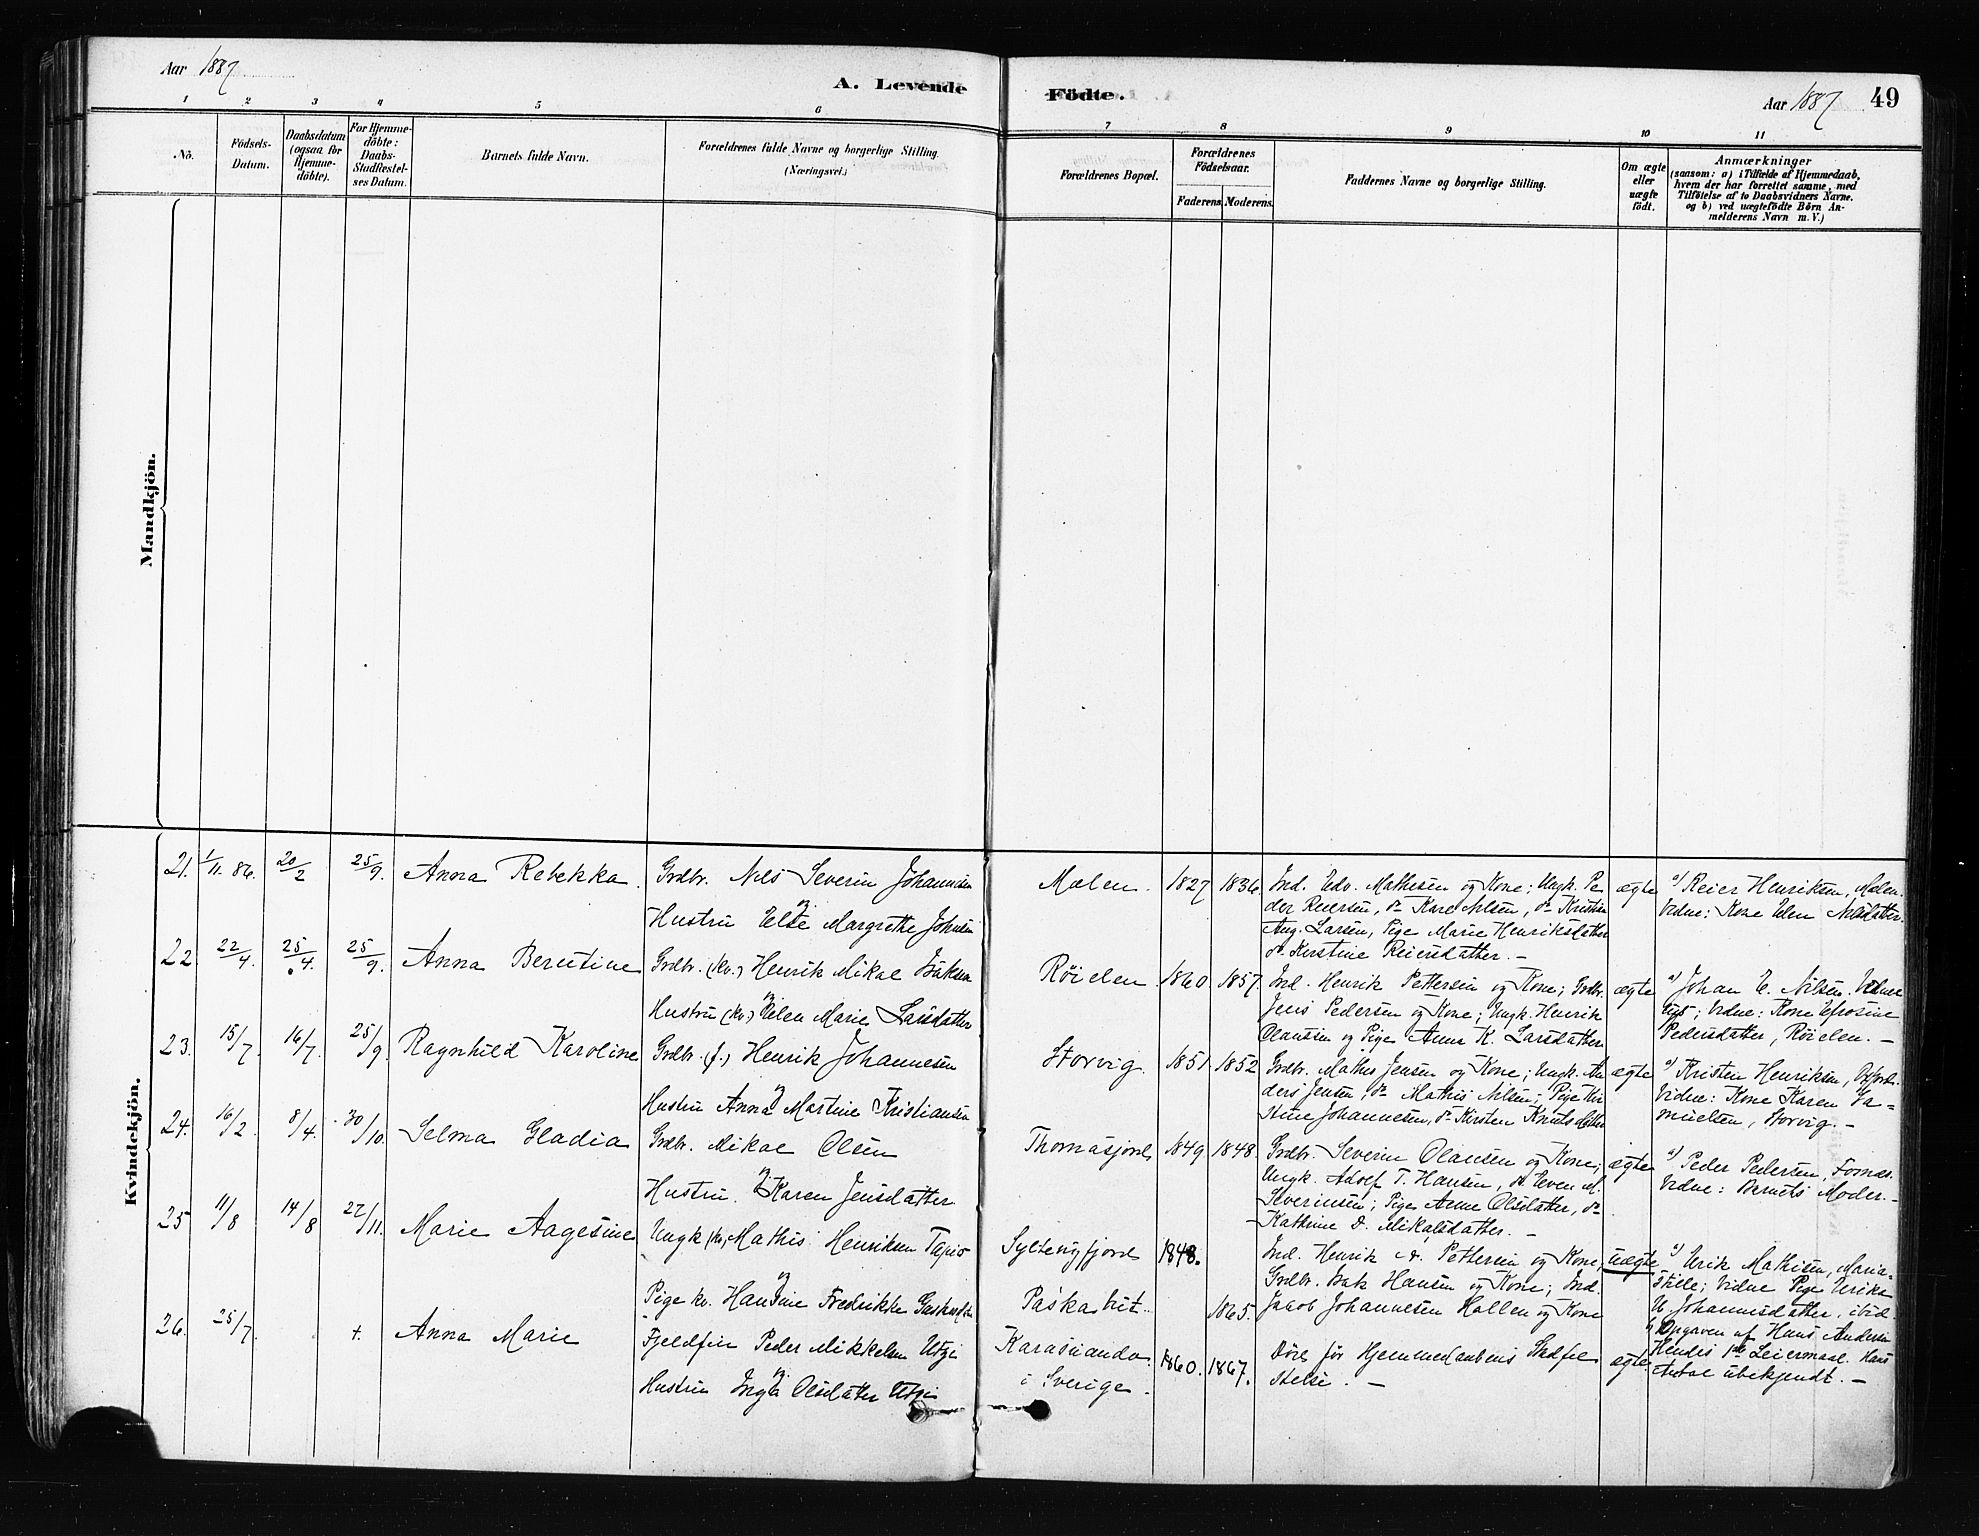 Aar 1887
A. Levende Födte.
Aar 1887 49
1 2 3 4 5 6 7 8 9 10 11
No.
Födsels-
Datum.
Daabsdatum
(ogsaa for
Hjemme-
döbte).
For Hjemme-
döbte:
Daabs-
Stadfestel-
ses Datum.
Barnets fulde Navn.
Forældrenes fulde Navne og borgerlige Stilling
(Næringsvei.)
Forældrenes Bopæl.
Forældrenes
Födselsaar.
Faderens Moderens.
Faddernes Navne og borgerlige Stilling.
Om ægte
eller
uægte
født.
Anmærkninger
(saasom: a) i Tilfælde af Hjemmedaab,
hvem der har forrettet samme, med
Tilföielse af to Daabsvidners Navne.
og b) ved uægtefödte Börn An-
melderens Navn m. V.)
Mandkjön.
Kvindekjön.
21. 1/11. 86. 20/2 25/9. Anna Rebekka.
Grdbr. Nils Severin Johannesen
og
Hustru Else Margrethe Johnsen
Molen. 1827 1836
Ind. Edv. Mathisen og Kone; Ungk. Pe-
der Reiersen, do Kare Nilsen, do Kristian
Aug. Larsen, Pige Marie Henriksdatter
do Kirstine Reiersdatter. —
ægte
a) Reier Henriksen, Molen.
Vidne: Kone Elen Nilsdatter.
22. 22/4. 25/4. 25/9. Anna Berutine
Grdbr. (kv.) Henrik Mikal Isaksen
og
Hustru (kv.) Elen Marie Larsdatter
Röielen 1860. 1857.
Ind. Henrik Pettersen og Kone; Grdbr.
Jens Pedersen og Kone; Ungk. Henrik
Olaussen og Pige Anne K. Larsdatter
ægte
a) Johan E. Nilsen.
Vidne: Kone Efrosine
Pedersdatter, Röielen. —
23. 15/7. 16/7. 25/9. Ragnhild Karoline
Grdbr. (f.) Henrik Johannesen
og
Hustru Anna Martine Kristiansen
Storvig. 1851. 1852
Grdbr. Mathis Jensen og Kone; Ungk. An-
ders Jensen, do Mathis Nilsen; Pige Kir-
stine Johannesen, do Kirsten Knutsdatter
ægte
a) Kristen Henriksen,
Vidne: Kone Karen Sa-
muelsen, Storvig. —
24. 16/2. 8/4. 30/10. Selma Gladia
Grdbr. Mikal Olsen
og
Hustru. Karen Jensdatter
Thomasjord 1849 1848.
Grdbr. Severin Olausen og Kone;
Ungk. Adolf T. Hansen, do Even M.
Severinsen; Pige Anne Olsdatter, do
Kathrine D. Mikalsdatter. —
ægte
a) Peder Pedersen, Fornes.
Vidne: Barnets Moder. —
25 11/8 14/8 27/11. Marie Aagesine
Ungk (kv.) Mathis Henriksen Tapio
og
Pige kv. Hansine Fredrikke
Syltevigfjord 1848.
Paskabut. 1865.
Ind. Henrik A. Pettersen og Kone,
Grdbr. Isak Hansen og Kone; Ind.
Jacob Johannesen Hallen og Kone
uægte
a) Erik Mathisen, Maria-
Stille; Vidne Pige Erika
U. Johannesdatter, ibid.
b) Opgaven af Hans Andersen
Hendes 1ste Leiermaal. Hans
Antal ubekjendt. —
26. 25/7. +. Anna Marie
Fjeldfin Peder Mikkelsen Utzi
og
Hustru Inga Olsdatter Utzi
Karasuando.
i Sverige. 1860. 1867.
Döde før Hjemmedaabens Stadfæ-
stelse. —
ægte